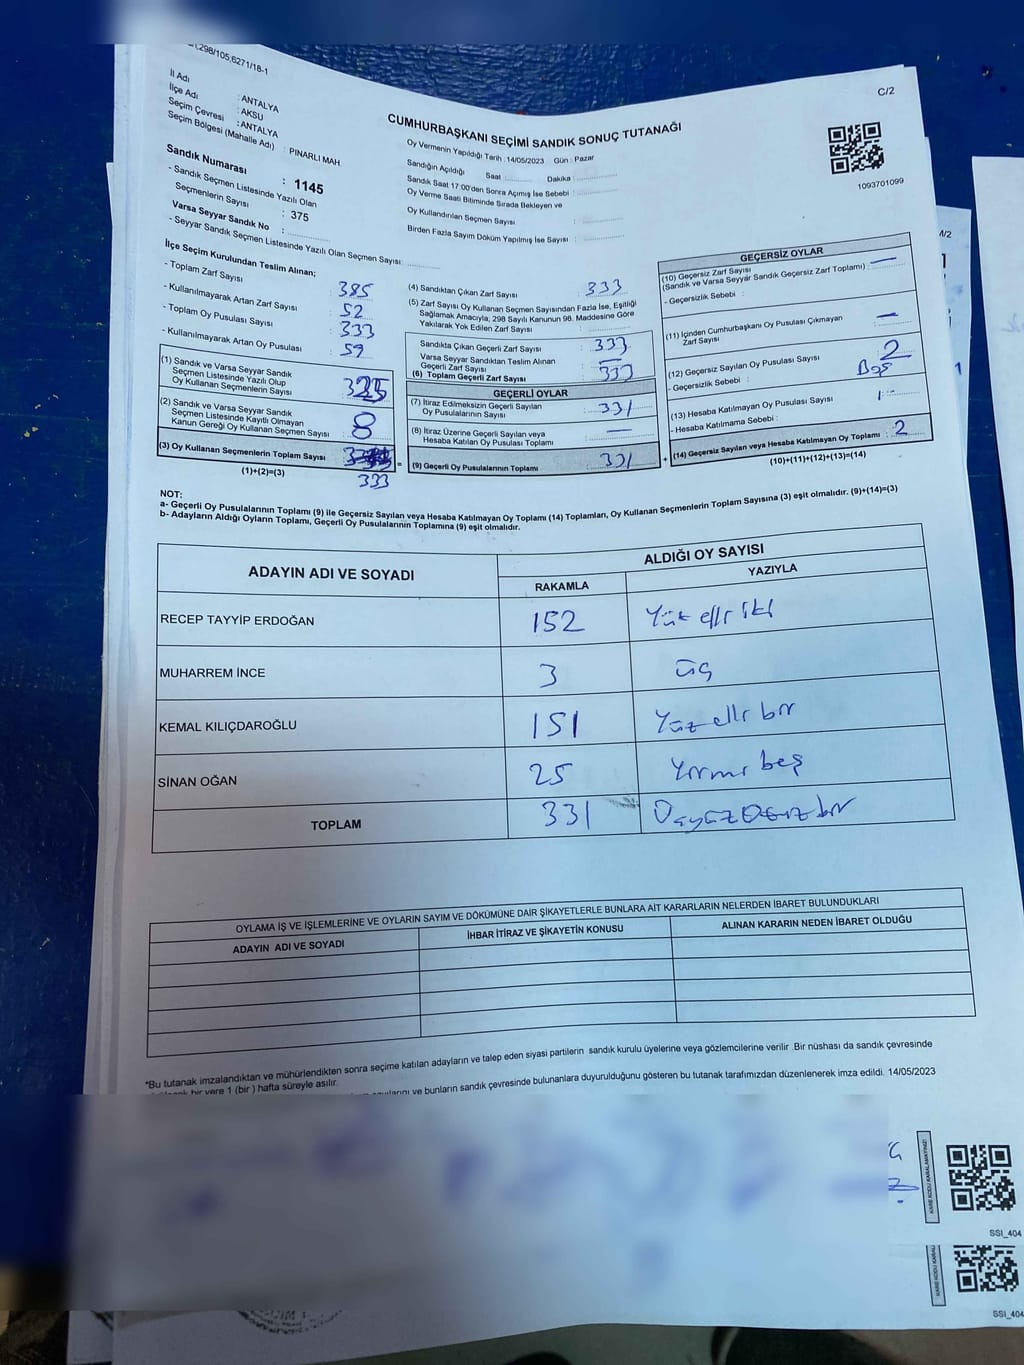 298/105,6271/18-1
C/2
İl Adı : ANTALYA
İlçe Adı : AKSU
Seçim Çevresi : ANTALYA
Seçim Bölgesi (Mahalle Adı) : PINARLI MAH.
Sandık Numarası : 1145
- Sandık Seçmen Listesinde Yazılı Olan
Seçmenlerin Sayısı : 375
Varsa Seyyar Sandık No :
- Seyyar Sandık Seçmen Listesinde Yazılı Olan Seçmen Sayısı:
CUMHURBAŞKANI SEÇİMİ SANDIK SONUÇ TUTANAĞI
Oy Vermenin Yapıldığı Tarih : 14/05/2023 Gün : Pazar
Sandığın Açıldığı Saat : Dakika :
Sandık Saat 17:00'den Sonra Açımış İse Sebebi :
Oy Verme Saati Bitiminde Sırada Bekleyen ve
Oy Kullandırılan Seçmen Sayısı :
Birden Fazla Sayım Döküm Yapılmış İse Sayısı :
1093701099
İlçe Seçim Kurulundan Teslim Alınan;
- Toplam Zarf Sayısı : 385
- Kullanılmayarak Artan Zarf Sayısı : 52
- Toplam Oy Pusulası Sayısı : 333
- Kullanılmayarak Artan Oy Pusulası : 59
(1) Sandık ve Varsa Seyyar Sandık
Seçmen Listesinde Yazılı Olup
Oy Kullanan Seçmenlerin Sayısı : 325
(2) Sandık ve Varsa Seyyar Sandık
Seçmen Listesinde Kayıtlı Olmayan
Kanun Gereği Oy Kullanan Seçmen Sayısı : 8
(3) Oy Kullanan Seçmenlerin Toplam Sayısı
(1)+(2)=(3) 333
(4) Sandıktan Çıkan Zarf Sayısı : 333
(5) Zarf Sayısı Oy Kullanan Seçmen Sayısından Fazla İse, Eşitliği
Sağlamak Amacıyla; 298 Sayılı Kanunun 98. Maddesine Göre
Yakılarak Yok Edilen Zarf Sayısı :
Sandıkta Çıkan Geçerli Zarf Sayısı : 333
Varsa Seyyar Sandıktan Teslim Alınan
Geçerli Zarf Sayısı : —
(6) Toplam Geçerli Zarf Sayısı : 333
GEÇERLİ OYLAR
(7) İtiraz Edilmeksizin Geçerli Sayılan
Oy Pusulalarının Sayısı : 331
(8) İtiraz Üzerine Geçerli Sayılan veya
Hesaba Katılan Oy Pusulası Toplamı : —
= (9) Geçerli Oy Pusulalarının Toplamı : 331
GEÇERSİZ OYLAR
(10) Geçersiz Zarf Sayısı
(Sandık ve Varsa Seyyar Sandık Geçersiz Zarf Toplamı) : —
- Geçersizlik Sebebi :
(11) İçinden Cumhurbaşkanı Oy Pusulası Çıkmayan
Zarf Sayısı : —
(12) Geçersiz Sayılan Oy Pusulası Sayısı : 2
- Geçersizlik Sebebi : Boş
(13) Hesaba Katılmayan Oy Pusulası Sayısı :
- Hesaba Katılmama Sebebi :
+ (14) Geçersiz Sayılan veya Hesaba Katılmayan Oy Toplamı : 2
(10)+(11)+(12)+(13)=(14)
NOT:
a- Geçerli Oy Pusulalarının Toplamı (9) ile Geçersiz Sayılan veya Hesaba Katılmayan Oy Toplamı (14) Toplamları, Oy Kullanan Seçmenlerin Toplam Sayısına (3) eşit olmalıdır. (9)+(14)=(3)
b- Adayların Aldığı Oyların Toplamı, Geçerli Oy Pusulalarının Toplamına (9) eşit olmalıdır.
ADAYIN ADI VE SOYADI
ALDIĞI OY SAYISI
RAKAMLA YAZIYLA
RECEP TAYYİP ERDOĞAN 152 Yüz elli iki
MUHARREM İNCE 3 üç
KEMAL KILIÇDAROĞLU 151 Yüz elli bir
SİNAN OĞAN 25 Yirmi beş
TOPLAM 331 Üçyüz Otuz bir
OYLAMA İŞ VE İŞLEMLERİNE VE OYLARIN SAYIM VE DÖKÜMÜNE DAİR ŞİKAYETLERLE BUNLARA AİT KARARLARIN NELERDEN İBARET BULUNDUKLARI
ADAYIN ADI VE SOYADI İHBAR İTİRAZ VE ŞİKAYETİN KONUSU ALINAN KARARIN NEDEN İBARET OLDUĞU
*Bu tutanak imzalandıktan ve mühürlendikten sonra seçime katılan adayların ve talep eden siyasi partilerin sandık kurulu üyelerine veya gözlemcilerine verilir .Bir nüshası da sandık çevresinde
bir yere 1 (bir ) hafta süreyle asılır.
ve bunların sandık çevresinde bulunanlara duyurulduğunu gösteren bu tutanak tarafımızdan düzenlenerek imza edildi. 14/05/2023
KARE KODU KARALAMAYINIZ!
SSI_404
SSI_404